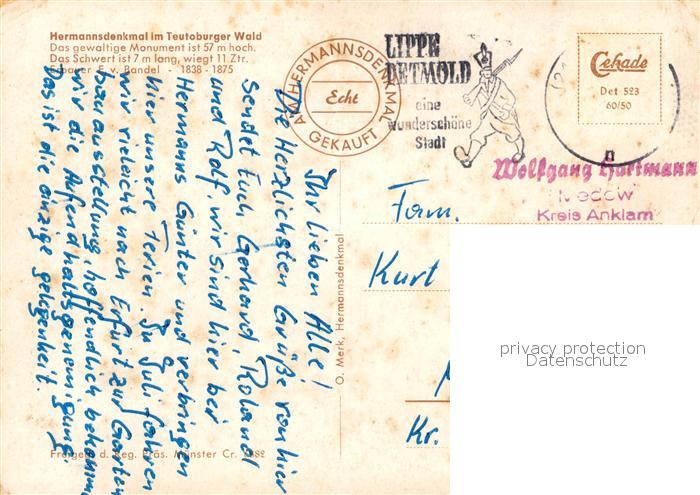 Hermannsdenkmal im Teutoburger Wald
Das gewaltige Monument ist 57 m hoch.
Das Schwert ist 7 m lang, wiegt 11 Ztr.
Erbauer E. v. Bandel - 1838 - 1875
AM HERMANNSDENKMAL
Echt
GEKAUFT
LIPPE
DETMOLD
eine
wunderschöne
Stadt
Cekade
Det 523
60/50
Wolfgang Hartmann
Medow
Kreis Anklam
Fam.
Kurt
Kr.
Ihr lieben Alle!
Die Herzlichsten Grüße von hier
sendet Euch Gerhard, Roland
und Rolf, wir sind hier bei
Hermanns Günter und verbringen
hier unsere Ferien. In Juli fahren
wir vieleicht nach Erfurt zur Garten
bauausstellung, hoffendlich bekomm
wir die Aufendhaltsgenemigung.
Das ist die enzige gelegenheit.
O. Merk, Hermannsdenkmal
Freigeg. d. Reg. Präs. Münster Cr.
privacy protection
Datenschutz